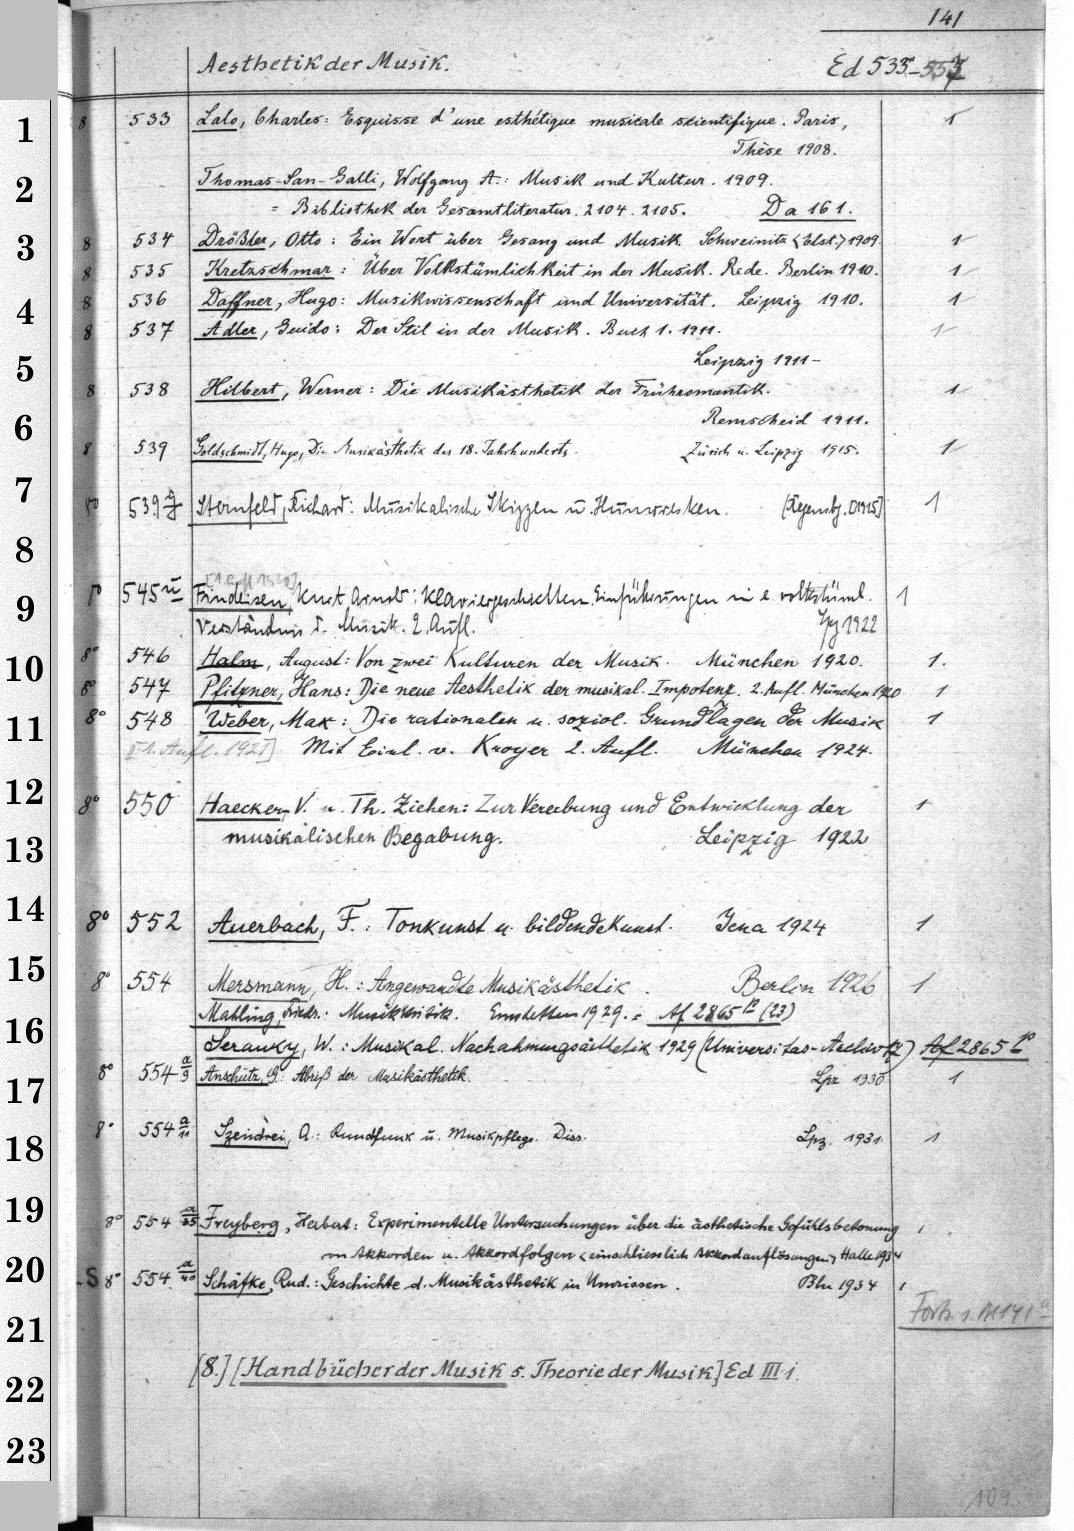 141
Aesthetik der Musik. Ed 533-557
1
2
3
4
5
6
7
8
9
10
11
12
13
14
15
16
17
18
19
20
21
22
23
8 533 Lalo, Charles: Esquisse d'une esthétique musicale scientifique. Paris, 1
Thèse 1908.
Thomas-San-Galli, Wolfgang A.: Musik und Kultur. 1909.
= Bibliothek der Gesamtliteratur. 2104. 2105. Da 161.
8 534 Drößler, Otto: Ein Wort über Gesang und Musik. Schweinitz <Elst.> 1909. 1
8 535 Kretzschmar: Über Volkstümlichkeit in der Musik. Rede. Berlin 1910. 1
8 536 Daffner, Hugo: Musikwissenschaft und Universität. Leipzig 1910. 1
8 537 Adler, Guido: Der Stil in der Musik. Buch 1. 1911. 1
Leipzig 1911-
8 538 Hilbert, Werner: Die Musikästhetik der Frühromantik. 1
Remscheid 1911.
8 539 Goldschmidt, Hugo, Die Musikästhetik des 18. Jahrhunderts. Zürich u. Leipzig 1915. 1
8° 539 g Sternfeld, Richard: Musikalische Skizzen u. Humoresken. [Regensbg. [1915] 1
545 u Findeisen, Kurt Arnold: Klaviergeschichten. Einführungen in e. volkstüml. 1
Verständnis d. Musik. 2. Aufl. Lpg 1922
8° 546 Halm, August: Von zwei Kulturen der Musik. München 1920. 1.
8° 547 Pfitzner, Hans: Die neue Aesthetik der musikal. Impotenz. 2. Aufl. München 1920 1
8° 548 Weber, Max: Die rationalen u. soziol. Grundlagen der Musik 1
[1. Aufl. 1921] Mit Einl. v. Kroyer 2. Aufl. München 1924.
8° 550 Haecker, V. u. Th. Ziehen: Zur Vererbung und Entwicklung der 1
musikalischen Begabung. Leipzig 1922
8° 552 Auerbach, F.: Tonkunst u. bildende Kunst. Jena 1924 1
8° 554 Mersmann, H.: Angewandte Musikästhetik. Berlin 1926 1
Mahling, Friedr.: Musikkritik. Emsdetten 1929. = Af 2865 (23)
Serauky, W.: Musikal. Nachahmungsästhetik 1929 (Universitas-Archiv 17) Af 2865
8° 554 a/9 Anschütz, G: Abriß der Musikästhetik. Lpz 1930 1
8° 554 a/11 Szendrei, A.: Rundfunk u. Musikpflege. Diss. Lpz. 1931. 1
8° 554 a/35 Freyberg, Herbert: Experimentelle Untersuchungen über die ästhetische Gefühlsbetonung 1
von Akkorden u. Akkordfolgen <einschliesslich Akkordauflösungen> Halle 1934
-S 8° 554 a/40 Schäfke, Rud.: Geschichte d. Musikästhetik in Umrissen. Bln 1934 1
Forts. s. Bl 141 a
[8.] [Handbücher der Musik s. Theorie der Musik] Ed III i.
109